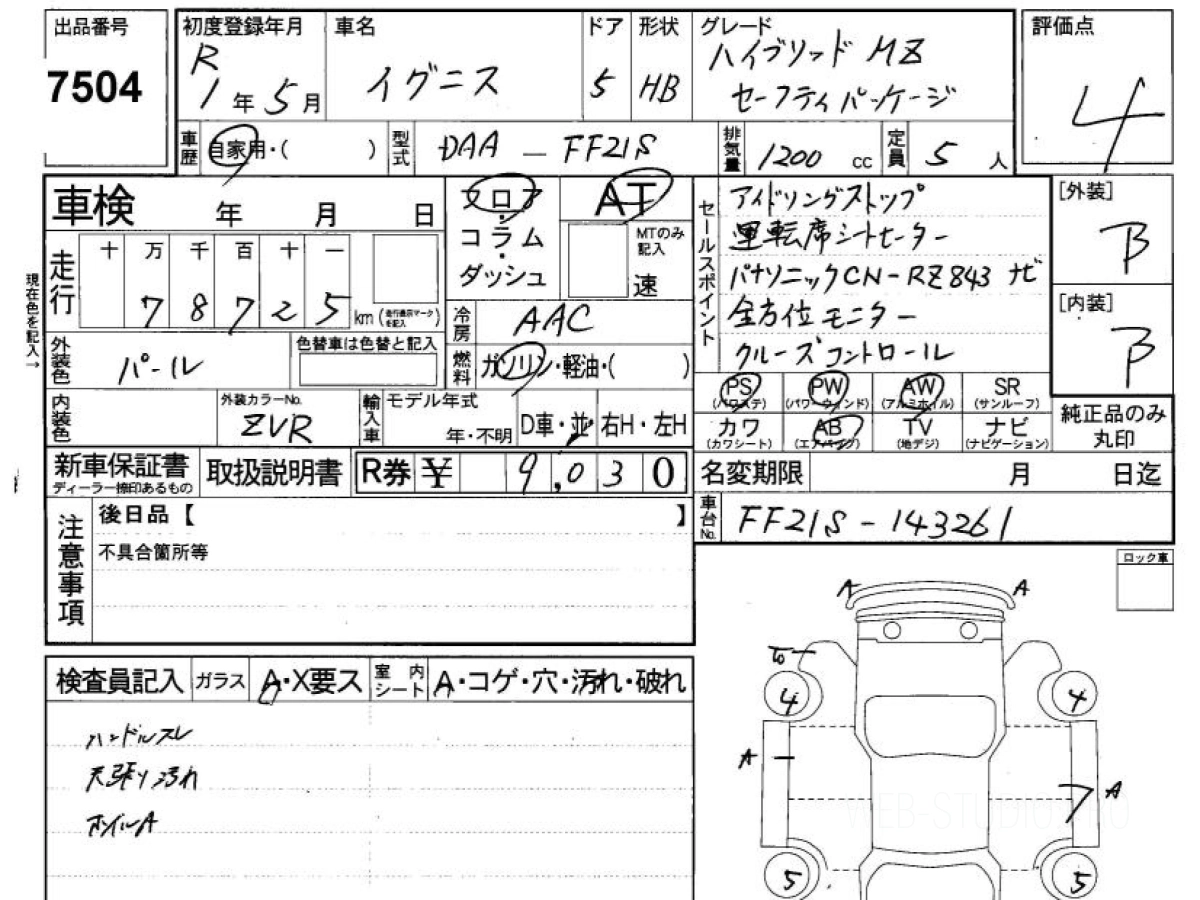 出品番号
7504
初度登録年月
R
1年5月
車名
イグニス
ドア
5
形状
HB
グレード
ハイブリッド MZ
セーフティパッケージ
評価点
4
車歴
自家用・( )
型式
DAA - FF21S
排気量
1200 cc
定員
5人
車検 年 月 日
フロア・
コラム・
ダッシュ
AT
MTのみ
記入
速
セールスポイント
アイドリングストップ
運転席シートヒーター
パナソニックCN-RZ843 ナビ
全方位モニター
クルーズコントロール
[外装]
B
[内装]
B
現在色を記入→
走行
十 万 千 百 十 一
7 8 7 2 5
km (走行表示マークを記入)
冷房
AAC
燃料
ガソリン・軽油・( )
外装色
パール
色替車は色替と記入
内装色
外装カラーNo.
ZVR
輸入車
モデル年式
年・不明
D車・並
右H・左H
PS
(パワステ)
PW
(パワーウィンド)
AW
(アルミホイル)
SR
(サンルーフ)
カワ
(カワシート)
AB
(エアバッグ)
TV
(地デジ)
ナビ
(ナビゲーション)
純正品のみ
丸印
新車保証書
ディーラー捺印あるもの
取扱説明書
R券 ¥ 9,030
名変期限 月 日迄
車台No.
FF21S-143261
注意事項
後日品【 】
不具合箇所等
ロック車
検査員記入
ガラス
A・X要ス
室内
シート
A・コゲ・穴・汚れ・破れ
ハンドルスレ
天張り汚れ
ホイルA
A A
4 4
A
A
5 5
WEB-STUDIO